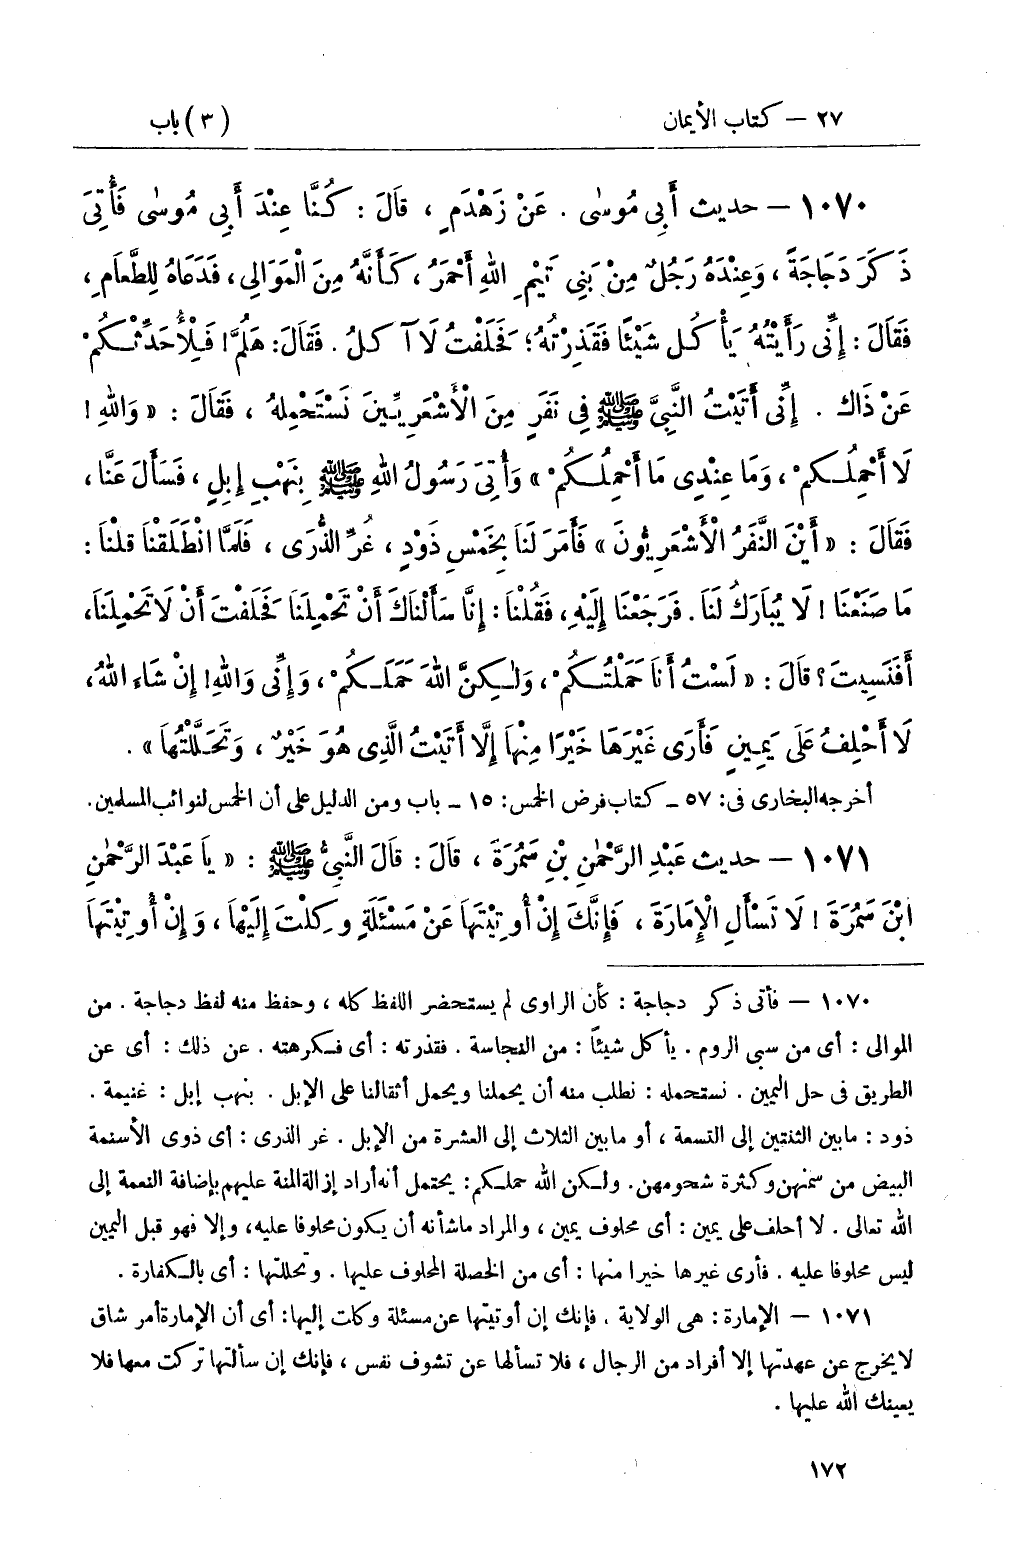 ٢٧ – كتاب الأيمان (٣) باب
١٠٧٠ – حديث أَبِى مُوسٰى . عَنْ زَهْدَمٍ ، قَالَ : كُنَّا عِنْدَ أَبِى مُوسٰى فَأُتِىَ
ذَكَرَ دَجَاجَةً ، وَعِنْدَهُ رَجُلٌ مِنْ بَنِى تَيْمِ اللهِ أَحْمَرُ ، كَأَنَّهُ مِنَ الْمَوَالِى ، فَدَعَاهُ لِلطَّعَامِ ،
فَقَالَ : إِنِّى رَأَيْتُهُ يَأْكُلُ شَيْئًا فَقَذِرْتُهُ ؛ فَحَلَفْتُ لَا آكلُ . فَقَالَ : هَلُمَّ ! فَلِأُحَدِّثْكُمْ
عَنْ ذَاكَ . إِنِّى أَتَيْتُ النَّبِىَّ ﷺ فِى نَفَرٍ مِنَ الْأَشْعَرِيِّينَ نَسْتَحْمِلهُ ، فَقَالَ : « وَاللهِ !
لَا أَحْمِلُكمْ ، وَمَا عِنْدِى مَا أَحْمِلُكُمْ » وَأُتِىَ رَسُولُ اللهِ ﷺ بِنَهْبِ إِبِلٍ ، فَسَأَلَ عَنَّا ،
فَقَالَ : « أَيْنَ النَّفَرُ الْأَشْعَرِيُّونَ » فَأَمَرَ لَنَا بِخَمْسِ ذَوْدٍ ، غُرِّ الذُّرَى ، فَلَمَّا انْطَلَقْنَا قلنَا :
مَا صَنَعْنَا ! لَا يُبَارَكُ لَنَا . فَرَجَعْنَا إِلَيْهِ ، فَقُلْنَا : إِنَّا سَأَلْنَاكَ أَنْ تَحْمِلَنَا فَحَلَفْتَ أَنْ لَا تَحْمِلَنَا ،
أَفَنَسِيتَ ؟ قَالَ : « لَسْتُ أَنَا حَمَلْتُكُمْ ، وَلٰكِنَّ اللهَ حَمَلَكُمْ ، وَإِنِّى وَاللهِ ! إِنْ شَاءَ اللهُ ،
لَا أَحْلِفُ عَلَى يَمِينٍ فَأَرَى غَيْرَهَا خَيْرًا مِنْهَا إِلَّا أَتَيْتُ الَّذِى هُوَ خَيْرٌ ، وَتَحَلَّلْتُهَا » .
أخرجه البخارى فى : ٥٧ – كتاب فرض الخمس : ١٥ – باب ومن الدليل على أن الخمس لنوائب المسلمين .
١٠٧١ – حديث عَبْدِ الرَّحْمٰنِ بْنِ سَمُرَةَ ، قَالَ : قَالَ النَّبِىُّ ﷺ : « يَا عَبْدَ الرَّحْمٰنِ
ابْنَ سَمُرَةَ ! لَا تَسْأَلِ الْإِمَارَةَ ، فَإِنَّكَ إِنْ أُوتِيْتَهَا عَنْ مَسْئَلَةٍ وكِلْتَ إِلَيْهَا ، وَإِنْ أُوتِيْتَهَا
١٠٧٠ – فأتى ذكر دجاجة : كأن الراوى لم يستحضر اللفظ كله ، وحفظ منه لفظ دجاجة . من
الموالى : أى من سبى الروم . يأكل شيئاً : من النجاسة . فقذرته : أى فكرهته . عن ذلك : أى عن
الطريق فى حل اليمين . نستحمله : نطلب منه أن يحملنا ويحمل أثقالنا على الإبل . بنهب إبل : غنيمة .
ذود : مابين الثنتين إلى التسعة ، أو مابين الثلاث إلى العشرة من الإبل . غر الذرى : أى ذوى الأسنمة
البيض من سمنهن وكثرة شحومهن . ولكن الله حملكم : يحتمل أنه أراد إزالة المنة عليهم بإضافة النعمة إلى
الله تعالى . لا أحلف على يمين : أى محلوف يمين ، والمراد ماشأنه أن يكون محلوفا عليه ، وإلا فهو قبل اليمين
ليس محلوفا عليه . فأرى غيرها خيرا منها : أى من الخصلة المحلوف عليها . وتحللتها : أى بالكفارة .
١٠٧١ – الإمارة : هى الولاية . فإنك إن أوتيتها عن مسئلة وكلت إليها : أى أن الإمارة أمر شاق
لا يخرج عن عهدتها إلا أفراد من الرجال ، فلا تسألها عن تشوف نفس ، فإنك إن سألتها تركت معها فلا
يعينك الله عليها .
١٧٢